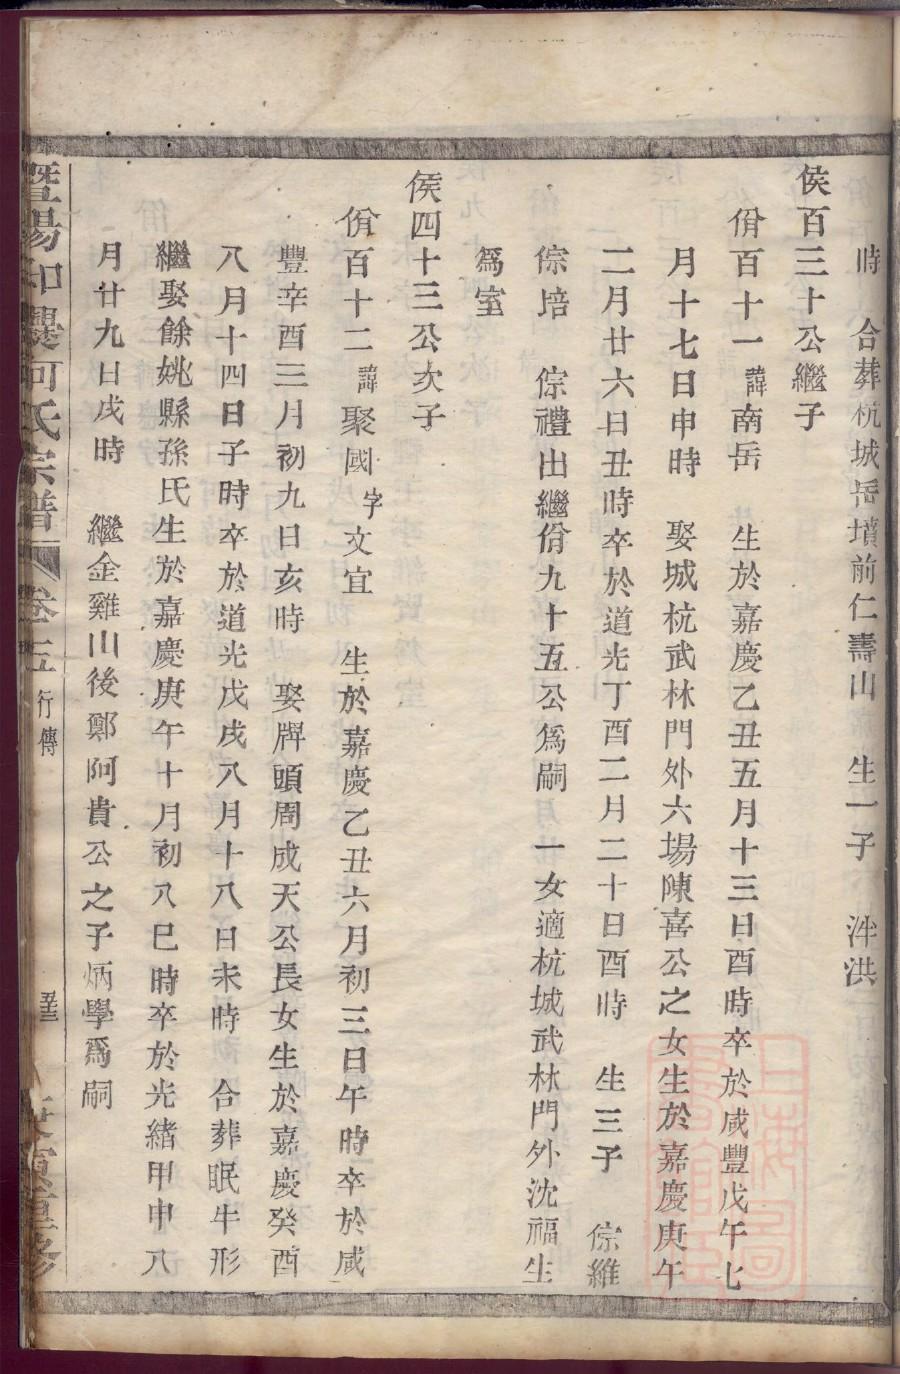 時　合葬杭城岳墳前仁壽山　生一子　泮洪
侯百三十公繼子
佾百十一諱南岳　生於嘉慶乙丑五月十三日酉時卒於咸豐戊午七
月十七日申時　娶城杭武林門外六場陳喜公之女生於嘉慶庚午
二月廿六日丑時卒於道光丁酉二月二十日酉時　生三子　倧維
倧培　倧禮出繼佾九十五公爲嗣　一女適杭城武林門外沈福生
爲室
侯四十三公次子
佾百十二諱聚國字文宜　生於嘉慶乙丑六月初三日午時卒於咸
豐辛酉三月初九日亥時　娶牌頭周成天公長女生於嘉慶癸酉
八月十四日子時卒於道光戊戌八月十八日未時　合葬眠牛形
繼娶餘姚縣孫氏生於嘉慶庚午十月初八巳時卒於光緒甲申八
月廿九日戌時　繼金雞山後鄭阿貴公之子炳學爲嗣
暨陽　何氏宗譜　卷三五　行傳